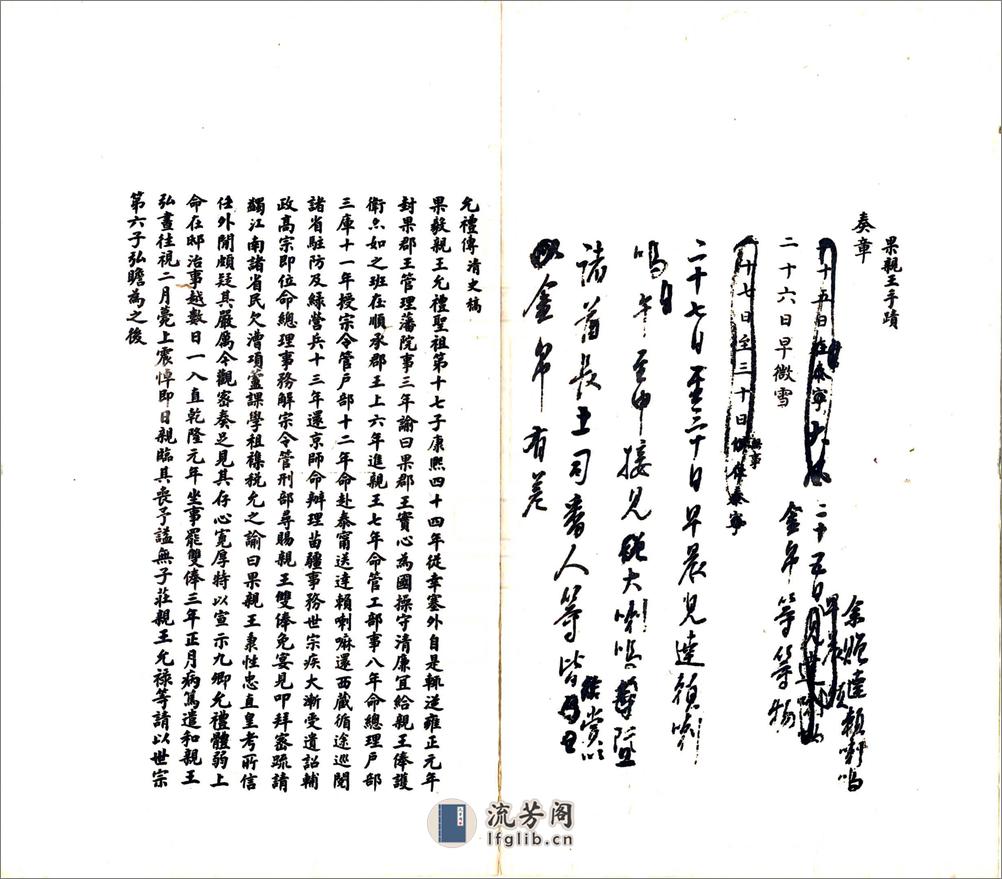 果親王手蹟
奏章
二十五日在泰寧
二十五日
早晨
余賜達賴喇嘛
二十六日早微雪
金帛等等物
十七日至三十日
無事
俱住泰寧
二十七日至三十日早晨見達賴喇
嘛午至申接見
大喇嘛
諸首長土司番人等皆
賞以
金帛有差
允禮傳清史稿
果毅親王允禮聖祖第十七子康熙四十四年從幸塞外自是輒從雍正元年
封果郡王管理藩院事三年諭曰果郡王實心為國操守清廉宜給親王俸護
衛亦如之班在順承郡王上六年進親王七年命管工部事八年命總理戶部
三庫十一年授宗令管戶部十二年命赴泰甯送達賴喇嘛還西藏循途巡閱
諸省駐防及綠營兵十三年還京師命辦理苗疆事務世宗疾大漸受遺詔輔
政高宗即位命總理事務解宗令管刑部尋賜親王雙俸免宴見叩拜密疏請
蠲江南諸省民欠漕項蘆課學租雜稅允之諭曰果親王秉性忠直皇考所信
任外間頗疑其嚴厲今觀密奏足見其存心寬厚特以宣示九卿允禮體弱上
命在邸治事越數日一入直乾隆元年坐事罷雙俸三年正月病篤遣和親王
弘晝往視二月薨上震悼即日親臨其喪予謚無子莊親王允祿等請以世宗
第六子弘瞻為之後
流芳阁
lfglib.cn